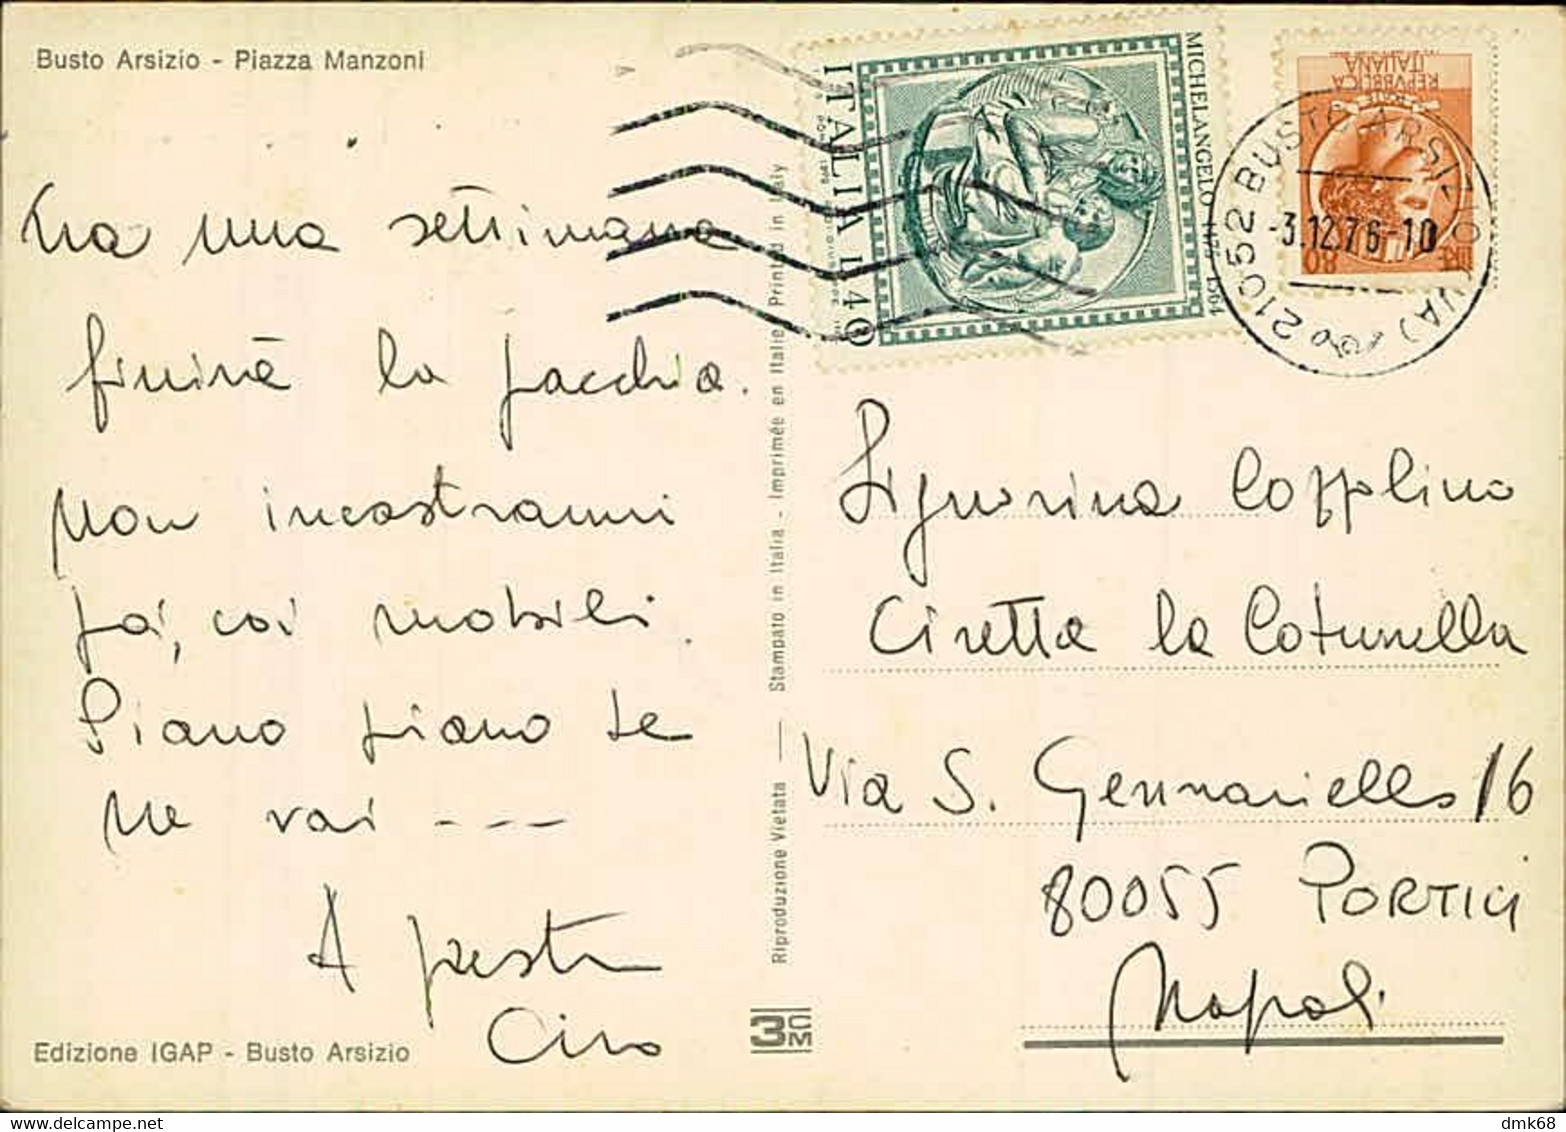 Busto Arsizio - Piazza Manzoni
Fra una settimana
finirà la pacchia.
Non incastrarmi
poi, coi mobili.
Piano piano te
ne vai ---
A presto
Ciro
Edizione IGAP - Busto Arsizio
Riproduzione Vietata — Stampato in Italia - Imprimée en Italie - Printed in Italy
3CM
MICHELANGELO 1475 - 1564
ITALIA L40
REPVBBLICA
ITALIANA
LIRE 80
21052 BUSTO ARSIZIO (VA)
-3.12.76-10
Signorina Coppolino
Ciretta la
Via S. Gennariello 16
80055 PORTICI
Napoli
dmk68